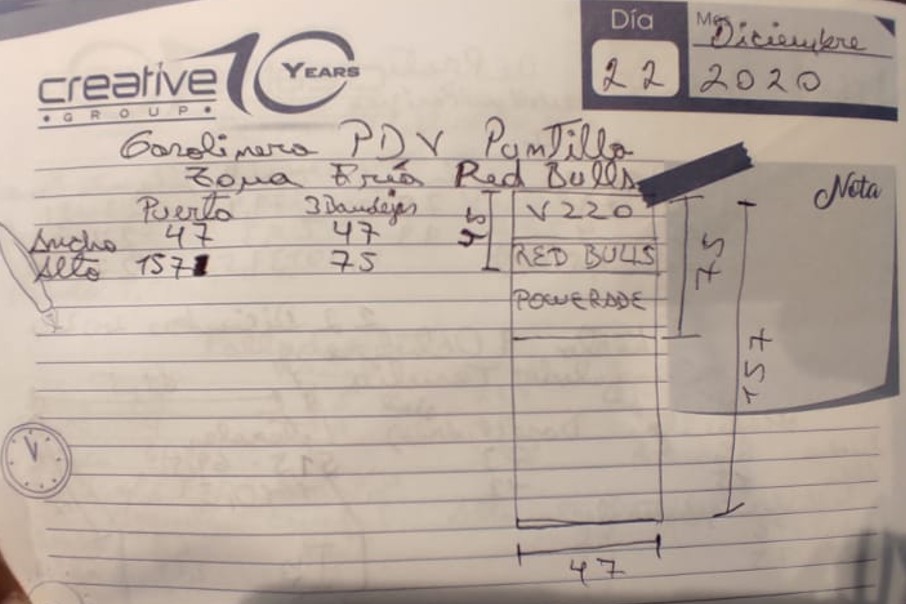 creative
GROUP
10 YEARS
Día
22
Mes
Diciembre
2020
Gasolinera PDV Puntilla
Zona Fría Red Bulls
Puerta 3 Bandejas
Ancho 47 47
Alto 157 75
V220
RED BULLS
POWERADE
75
157
47
Nota